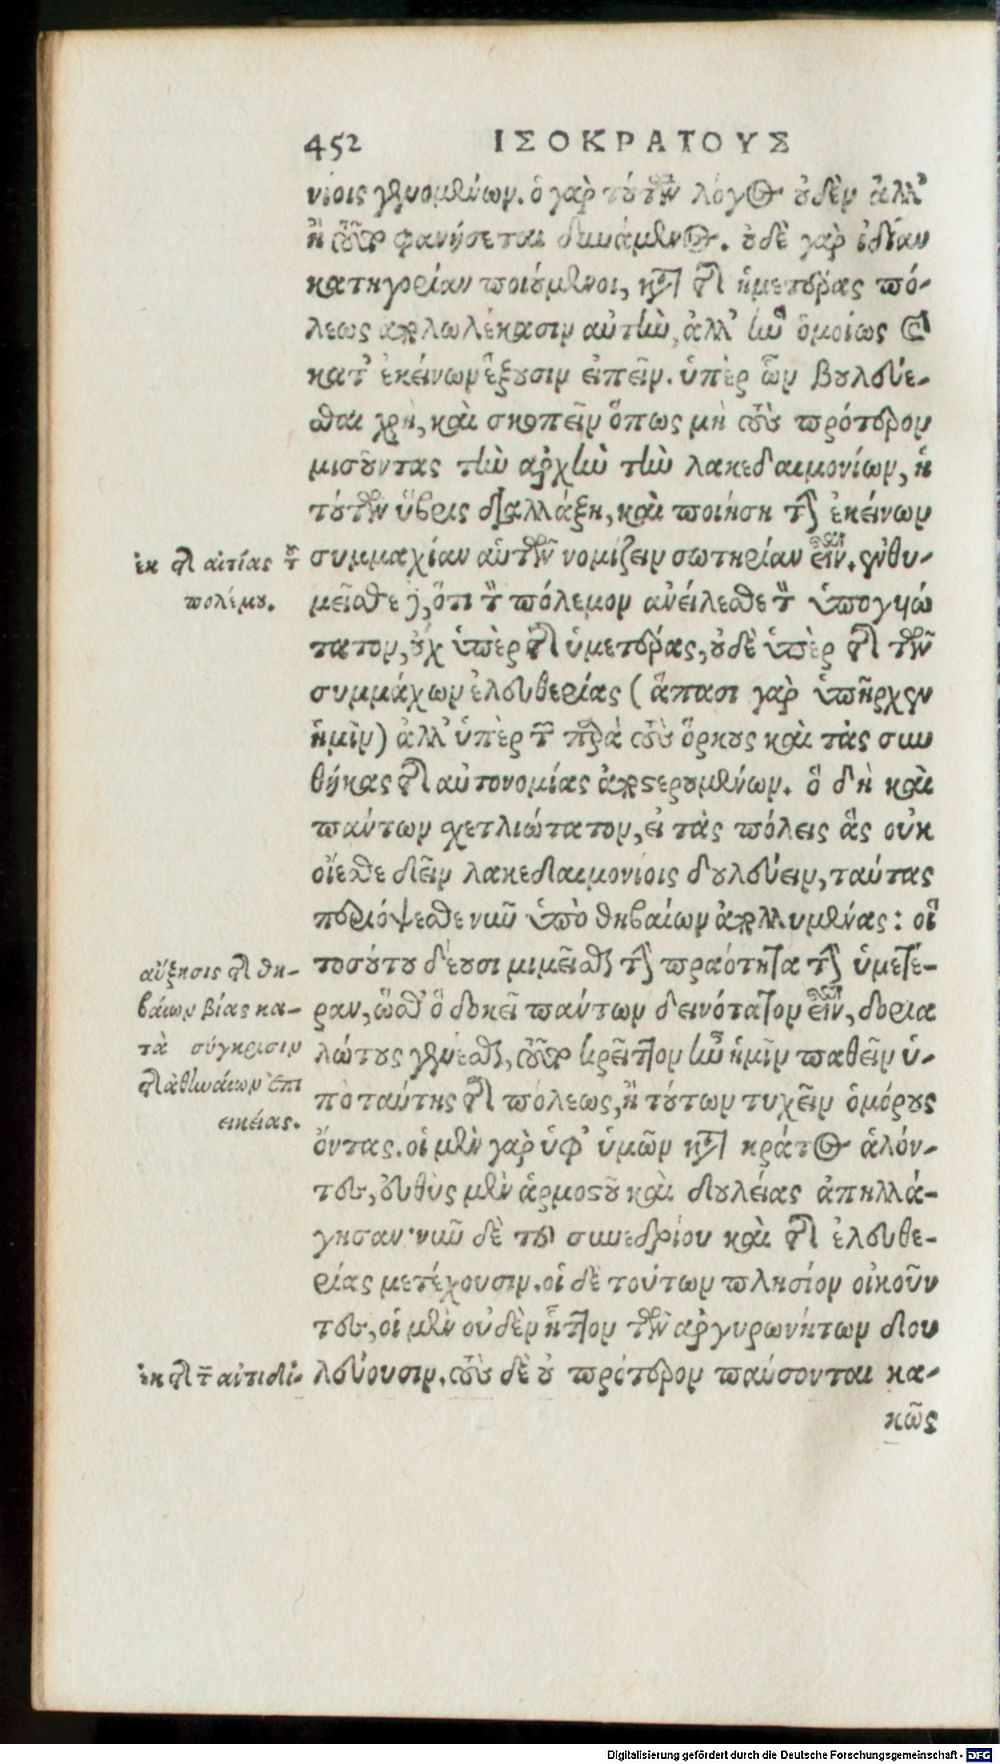 452 ΙΣΟΚΡΑΤΟΥΣ
νίοις γενομένων. ὁ γὰρ τούτων λόγος οὐδὲν ἀλλ’
ἢ τοῦτο φανήσεται δυνάμενος. οὐδὲ γὰρ ἰδίαν
κατηγορίαν ποιούμενοι, κατὰ τῆς ἡμετέρας πό-
λεως ἀπολωλέκασιν αὐτὴν, ἀλλ’ ἣν ὁμοίως καὶ
κατ’ ἐκείνων ἕξουσιν εἰπεῖν. ὑπὲρ ὧν βουλεύε-
σθαι χρὴ, καὶ σκοπεῖν ὅπως μὴ τοὺς πρότερον
μισοῦντας τὴν ἀρχὴν τὴν λακεδαιμονίων, ἡ
τούτων ὕβρις διαλλάξῃ, καὶ ποιήσῃ τὴν ἐκείνων
ἐκ τῆς αἰτίας τοῦ
πολέμου.
συμμαχίαν αὑτῶν νομίζειν σωτηρίαν εἶναι. ἐνθυ-
μεῖσθε δ’, ὅτι τὸν πόλεμον ἀνείλεσθε τὸν ὑπογυώ
τατον, οὐχ ὑπὲρ τῆς ὑμετέρας, οὐδὲ ὑπὲρ τῆς τῶν
συμμάχων ἐλευθερίας (ἅπασι γὰρ ὑπῆρχεν
ἡμῖν) ἀλλ’ ὑπὲρ τῶν παρὰ τοὺς ὅρκους καὶ τὰς συν
θήκας τῆς αὐτονομίας ἀποστερουμένων. ὃ δὴ καὶ
πάντων σχετλιώτατον, εἰ τὰς πόλεις ἃς οὐκ
οἴεσθε δεῖν λακεδαιμονίοις δουλεύειν, ταύτας
περιόψεσθε νυνὶ ὑπὸ θηβαίων ἀπολλυμένας: οἳ
αὔξησις τῆς θη-
βαίων βίας κα-
τὰ σύγκρισιν
τῆς ἀθηναίων ἐπι
εικείας.
τοσούτου δέουσι μιμεῖσθαι τὴν πραότητα τὴν ὑμετέ-
ραν, ὥσθ’ ὃ δοκεῖ πάντων δεινότατον εἶναι, δορια
λώτους γενέσθαι, τοῦτο κρεῖττον ἦν ἡμῖν παθεῖν ὑ-
πὸ ταύτης τῆς πόλεως, ἢ τούτων τυχεῖν ὁμόρους
ὄντας. οἱ μὲν γὰρ ὑφ’ ὑμῶν κατὰ κράτος ἁλόν-
τες, εὐθὺς μὲν ἁρμοστοῦ καὶ δουλείας ἀπηλλά-
γησαν· νῦν δὲ τοῦ συνεδρίου καὶ τῆς ἐλευθε-
ρίας μετέχουσιν. οἱ δὲ τούτων πλησίον οἰκοῦν
τες, οἱ μὲν οὐδὲν ἧττον τῶν ἀργυρωνήτων δου
λεύουσιν. τοὺς δὲ οὐ πρότερον παύσονται κα-
κῶς
Digitalisierung gefördert durch die Deutsche Forschungsgemeinschaft - DFG